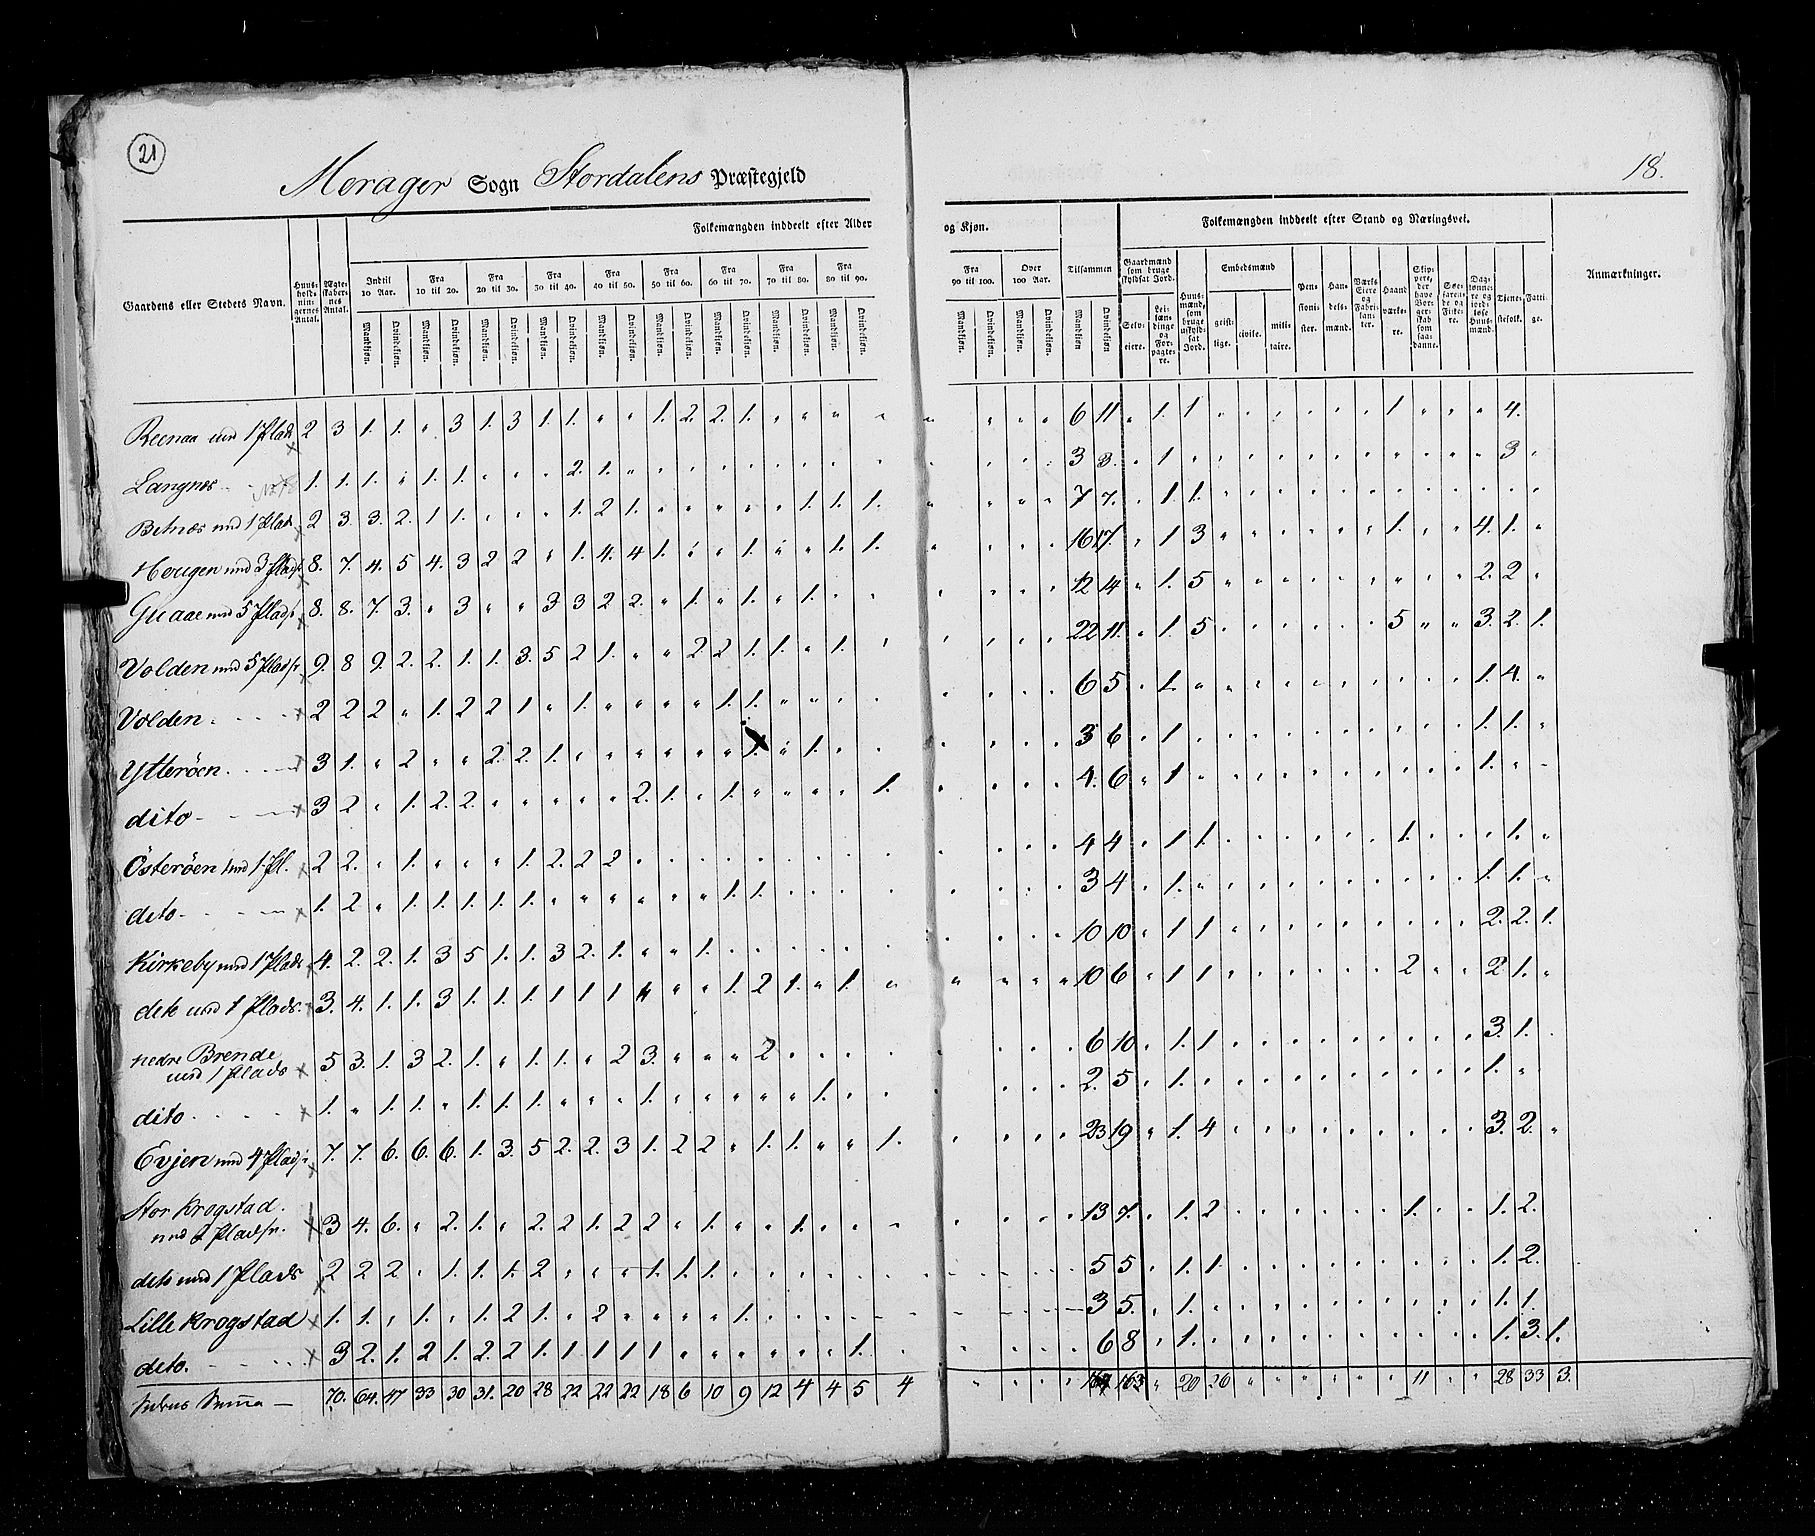 21
Merager Sogn Stordalens Præstegjeld
18.
Folkemængden inddeelt efter Alder og Kjøn.
Folkemængden inddeelt efter Stand og Næringsvei.
Gaardens eller Stedets Navn.
Indtil 10 Aar. Fra 10 til 20. Fra 20 til 30. Fra 30 til 40. Fra 40 til 50. Fra 50 til 60. Fra 60 til 70. Fra 70 til 80. Fra 80 til 90. Fra 90 til 100. Over 100 Aar. Tilsammen
Mandkjøn. Qvindekjøn.
Gaardmænd som bruge skyldsat Jord.
Selveiere. Leilændinge og Forpagtere.
Embedsmænd
geistlige. civile. militaire.
Pensionister. Handelsmænd. Værks Eiere og Fabrikanter. Haandværkere.
Tjenestefolk. Fattige.
Anmærkninger.
Reenaa med 1 Plads 2 3 1. 1. " 3 1. 3 1. 1. " " 1. 2. 2. 1. " " " " 6 11 " 1. 1 1 4.
Langnes 1. 1. 1. " 1. 1. " " " 2. 1. " 3 3. " 1 3
Betnæs med 1 Plads 2 3. 3. 2. 1 1. " " " 1. 2 1. " " " " " 1. 1. 1. 7 7. " 1. 1.
Hougen med 3 Pladse 8. 7. 4. 5 4. 3 2 2 " 1. 4. 4 1. " " 1. " " 1. 1. 16 17. " 1 3 1. 4. 1.
Guaae med 5 Pladse 8. 8. 7. 3. " 3 " " 3 3 2 2. " 1. " 1. " 1. 12 14 " 1. 5 2. 2
Volden med 5 Pladse 9. 8 9. 2. 2. 1. 1. 3. 5 2 1. " " 2. 2 1. 1. " 1. 22 11. " 1. 5 5 3. 2. 1.
Volden 2 2 2 " 1. 2 2 1 " 1. " " " " 1. 1. 6 5 " 1. 1. 4.
Ytterøen 3 1. " 2 " " 2. 2. 1. " " " " " " 1. " 1. 3 6 " 1 1. 1.
dito 3 2 " 1. 2. 2. " " " " " 2. 1. " 1. " " " " 1. 4. 6 " 1 1.
Østerøen med 1 Pl. 2 2. " 1. " " " 1. 2. 2 2 4 4 " 1 1. 1. 1.
dito 1. 2 " 1. 1. 1. 1. 1. " " " " " " 1. 1. 3 4 " 1. 1. 1.
Kirkeby med 1 Plads 4. 2. 2. 1. 3 5 1. 1. 3 2. 1. " " 1. 10 10 " 1 1 2. 2. 1.
dito med 1 Plads. 3. 4. 1. 1. 3 1. 1. 1. 1 1 1 " " " 1. 2 1. " 1. 10 6 " 1 1 2 2 1.
nedre Brende
med 1 Plads 5 3. 1. 3 2. 1. " 1. 1. " 2 3. " " " 2 6 10 " 1. 1 3. 1.
dito 1. " 1. 1. " 1. 1. 1. " " " 1. " " " " " 1. 2. 5 " 1. 1.
Evjen med 4 Pladse 7. 7. 6. 6. 6. 1. 3. 5 2. 2. 3 1. 2 2. " 1. 1. " " 1. 23 19 " 1. 4 3. 2.
Stor Krogstad.
med 2 Pladse. 3 4. 6. " 2. 1. " 2. 2 1. 2 2 " 1. " " 1. 13 7. " 1. 2 1. 1. 2.
dito med 1 Plads 2 2 2 " 1. 1. 1. 2 " " " 1. 1. 1. 5 5 " 1. 1. 1. 2.
Lille Krogstad 1. 1. " 1. " 1. 2 1. " 2 " " " " 1. 3 5. " 1. 1. 1.
dito. 3 2. 1. 2 1. 2. 2 1. 1 1 1 1 " " " " " 1. 6 8 " 1. 1. 3. 1.
70. 64. 47 33 30 31. 20 28 22 22 22 18 6 10 9 12 4 4 5 4 163 " 20 26 11 28 33 3.